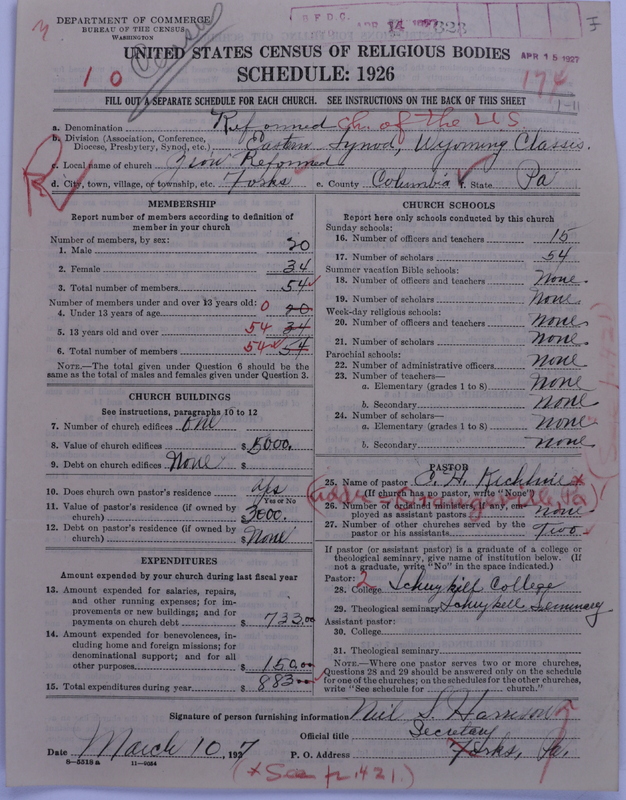 DEPARTMENT OF COMMERCE
BUREAU OF THE CENSUS
WASHINGTON
R.F.D.C.
APR 14 1927
APR 15 1927
UNITED STATES CENSUS OF RELIGIOUS BODIES
SCHEDULE: 1926
10
174
1-11
FILL OUT A SEPARATE SCHEDULE FOR EACH CHURCH. SEE INSTRUCTIONS ON THE BACK OF THIS SHEET
a. Denomination Reformed Ch. of the U.S.
b. Division (Association, Conference, Diocese, Presbytery, Synod, etc.) Eastern Synod, Wyoming Classis.
c. Local name of church Zion Reformed
d. City, town, village, or township, etc. Forks e. County Columbia f. State Pa
MEMBERSHIP
Report number of members according to definition of member in your church
Number of members, by sex:
1. Male 20
2. Female 34
3. Total number of members 54
Number of members under and over 13 years old:
4. Under 13 years of age 0 20
5. 13 years old and over 54 34
6. Total number of members 54 54
NOTE.—The total given under Question 6 should be the same as the total of males and females given under Question 3.
CHURCH BUILDINGS
See instructions, paragraphs 10 to 12
7. Number of church edifices One
8. Value of church edifices $ 5000.
9. Debt on church edifices None $
10. Does church own pastor's residence yes
Yes or No
11. Value of pastor's residence (if owned by church) $ 3000.
12. Debt on pastor's residence (if owned by church) $ None
EXPENDITURES
Amount expended by your church during last fiscal year
13. Amount expended for salaries, repairs, and other running expenses; for improvements or new buildings; and for payments on church debt $ 733.00
14. Amount expended for benevolences, including home and foreign missions; for denominational support; and for all other purposes $ 150.00
15. Total expenditures during year $ 883.00
CHURCH SCHOOLS
Report here only schools conducted by this church
Sunday schools:
16. Number of officers and teachers 15
17. Number of scholars 54
Summer vacation Bible schools:
18. Number of officers and teachers None
19. Number of scholars None
Week-day religious schools:
20. Number of officers and teachers None
21. Number of scholars None
Parochial schools:
22. Number of administrative officers None
23. Number of teachers—
a. Elementary (grades 1 to 8) None
b. Secondary None
24. Number of scholars—
a. Elementary (grades 1 to 8) None
b. Secondary None
PASTOR
25. Name of pastor
(If church has no pastor, write "None")
(addr — Orangeville, Pa)
26. Number of ordained ministers, if any, employed as assistant pastors None
27. Number of other churches served by the pastor or his assistants Two
If pastor (or assistant pastor) is a graduate of a college or theological seminary, give name of institution below. (If not a graduate, write "No" in the space indicated.)
Pastor: 2
28. College Schuylkill College
29. Theological seminary Schuylkill Seminary
Assistant pastor:
30. College
31. Theological seminary
NOTE.—Where one pastor serves two or more churches, Questions 28 and 29 should be answered only on the schedule for one of the churches; on the schedules for the other churches, write "See schedule for church."
Signature of person furnishing information Neil S. Harrison
Official title Secretary
Date March 10, 1927 P. O. Address Forks, Pa.
8-5318 a 11-9054
(* See p. 421.)